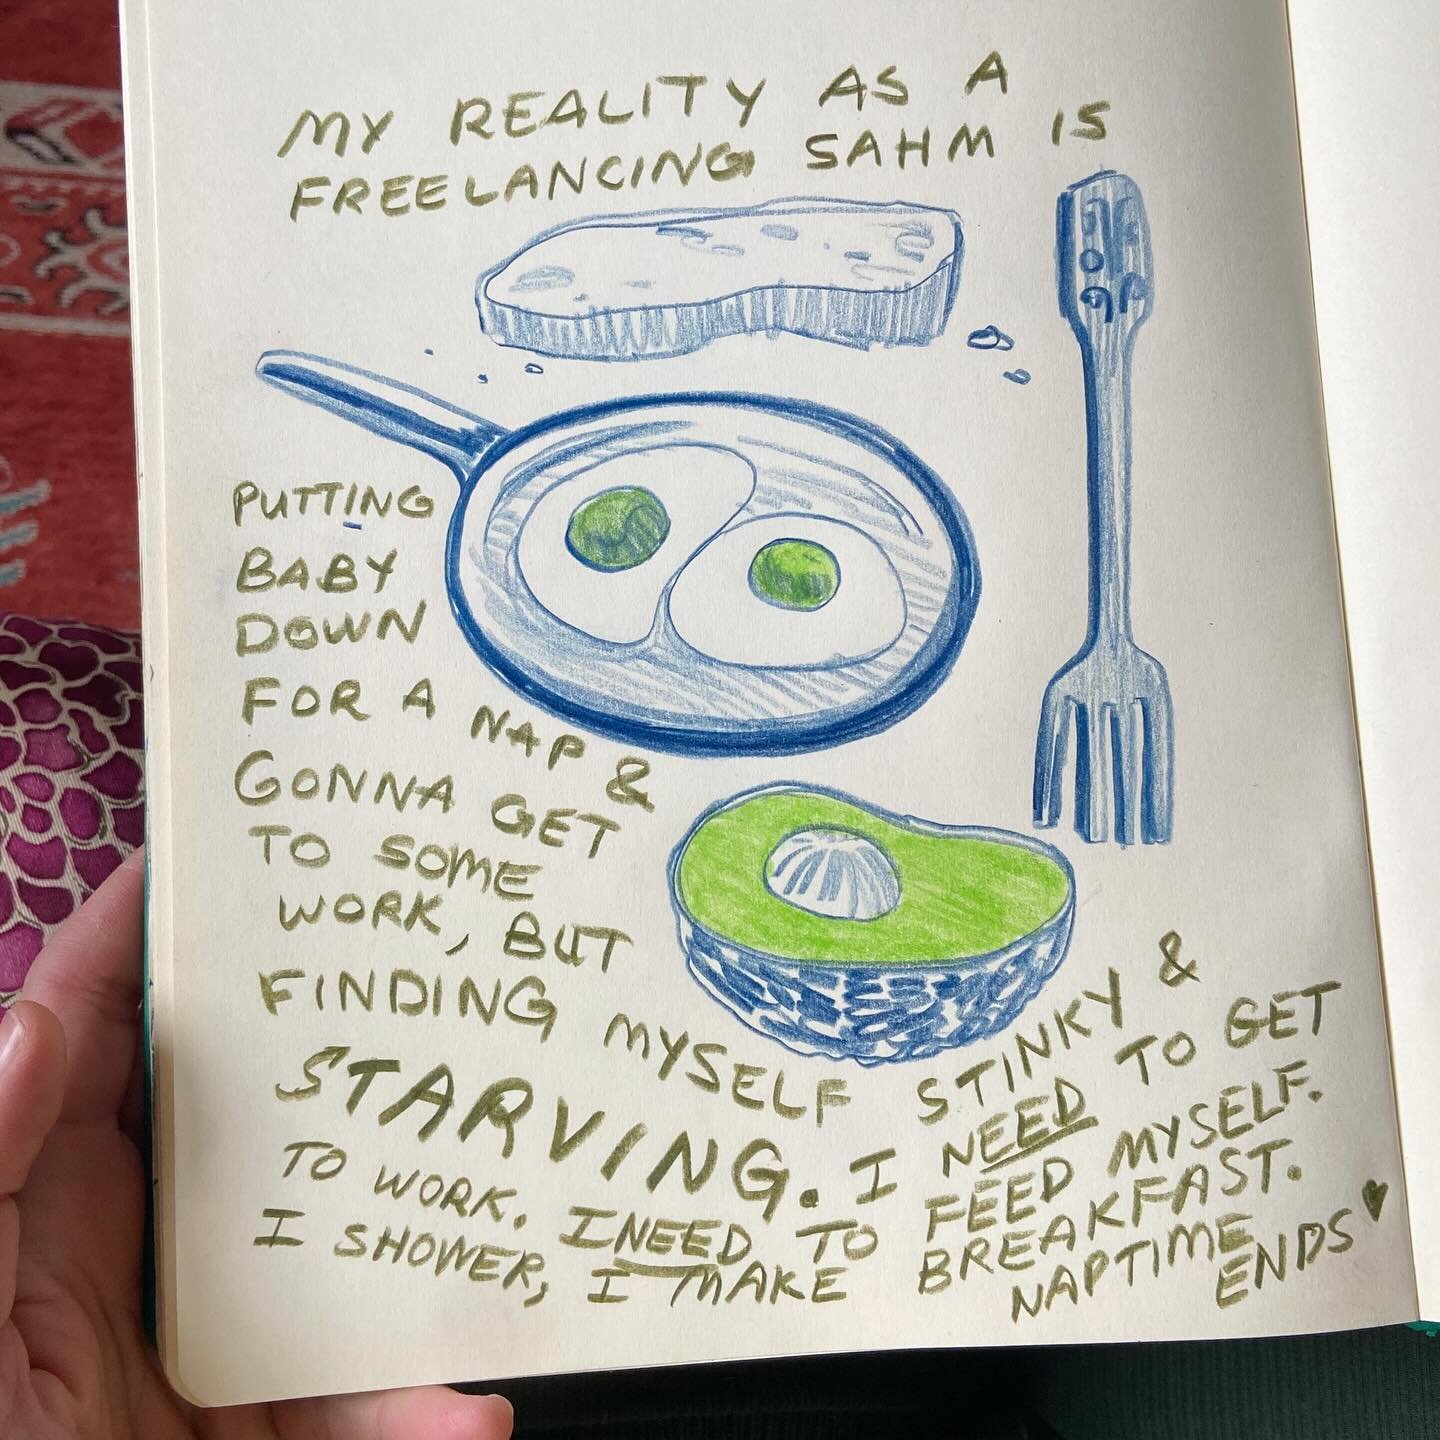 MY REALITY AS A
FREELANCING SAHM IS
PUTTING
BABY
DOWN
FOR A NAP &
GONNA GET
TO SOME
WORK, BUT
FINDING MYSELF STINKY &
STARVING. I NEED TO GET
TO WORK. I NEED TO FEED MYSELF.
I SHOWER, I MAKE BREAKFAST.
NAPTIME
ENDS